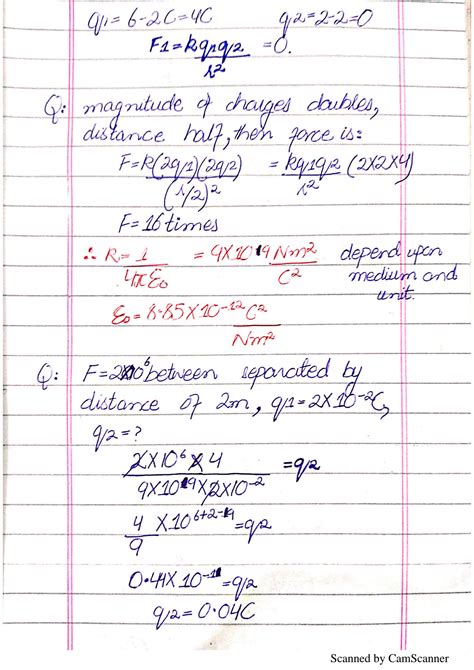 q1 = 6-2C = 4C q2 = 2-2 = 0
F1 = kq1q2/r² = 0.
Q: magnitude of charges doubles,
distance half, then force is:
F = k(2q1)(2q2)/(r/2)² = kq1q2/r² (2x2x4)
F = 16 times
∴ R = 1/4πε0 = 9x10^19 Nm²/C² depend upon
medium and
unit.
ε0 = 8.85x10^-12 C²/Nm²
Q: F=2x10^6 between separated by
distance of 2m, q1 = 2x10^-2C,
q2 = ?
2x10^6 x 4/9x10^19 x 2x10^-2 = q2
4/9 x10^6+2-19 = q2
0.44x10^-11 = q2
q2 = 0.04C
Scanned by CamScanner